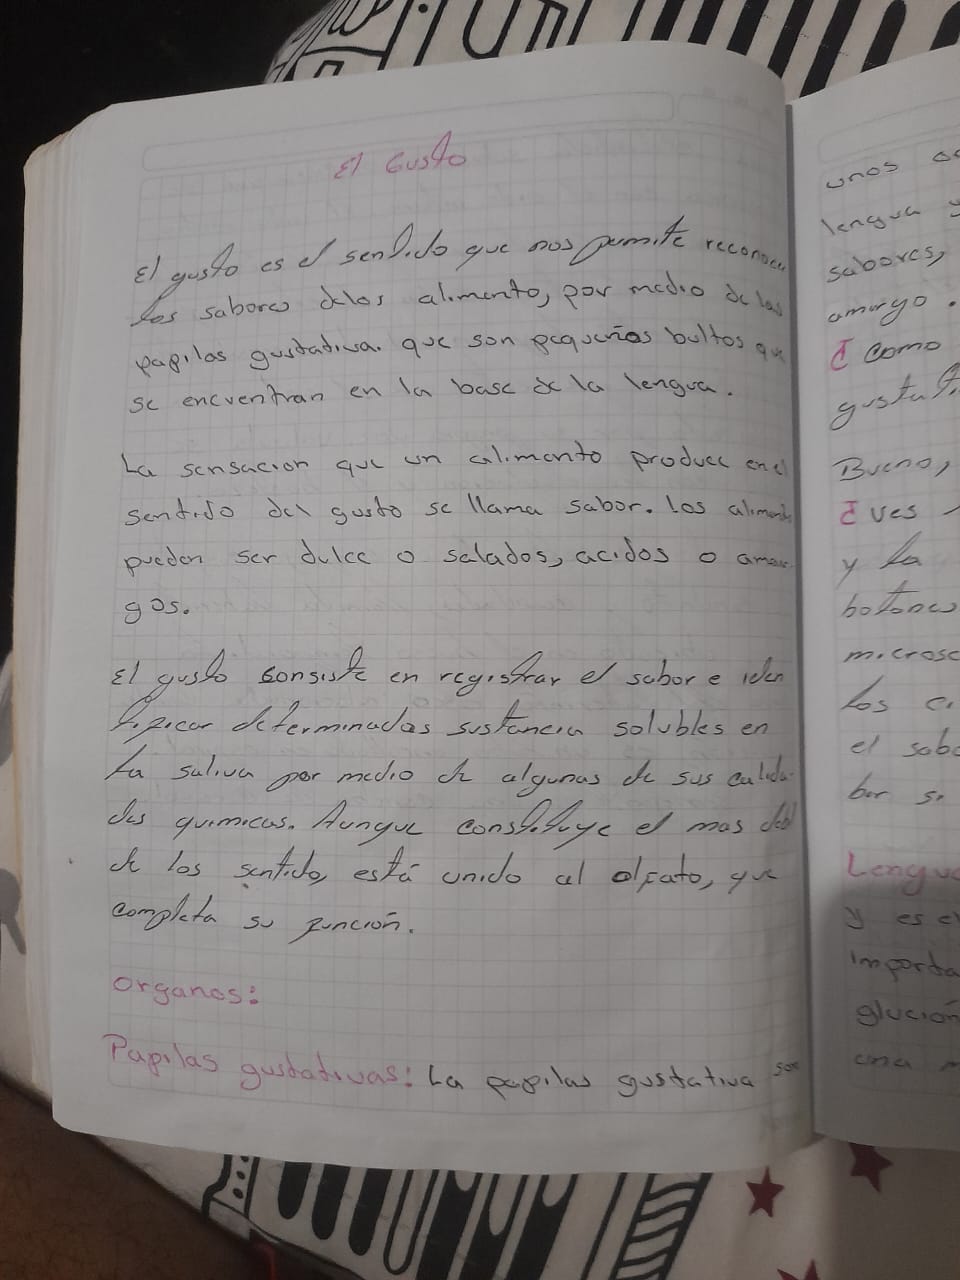 El Gusto
El gusto es el sentido que nos permite reconocer
los sabores delos alimento, por medio de las
papilas gustativa. que son pequeñas bultos que
se encuentran en la base de la lengua.
La sensacion que un alimento produce en el
sentido del gusto se llama sabor. los aliment
pueden ser dulce o salados, acidos o amar
gos.
El gusto consiste en registrar el sabor e iden
tificar determinadas sustancia solubles en
la saliva por medio de algunas de sus calida-
des quimicas. Aunque constituye el mas debil
de los sentido, está unido al olfato, que
completa su función.
organos:
Papilas gustativas: La papilas gustativa son
unos
lengua y
sabores,
amargo.
¿ como
gustat
Bueno,
¿ ves
y la
botones
microsc
Los
el sabo
bor si
Lengua
y es el
importa
glución
una